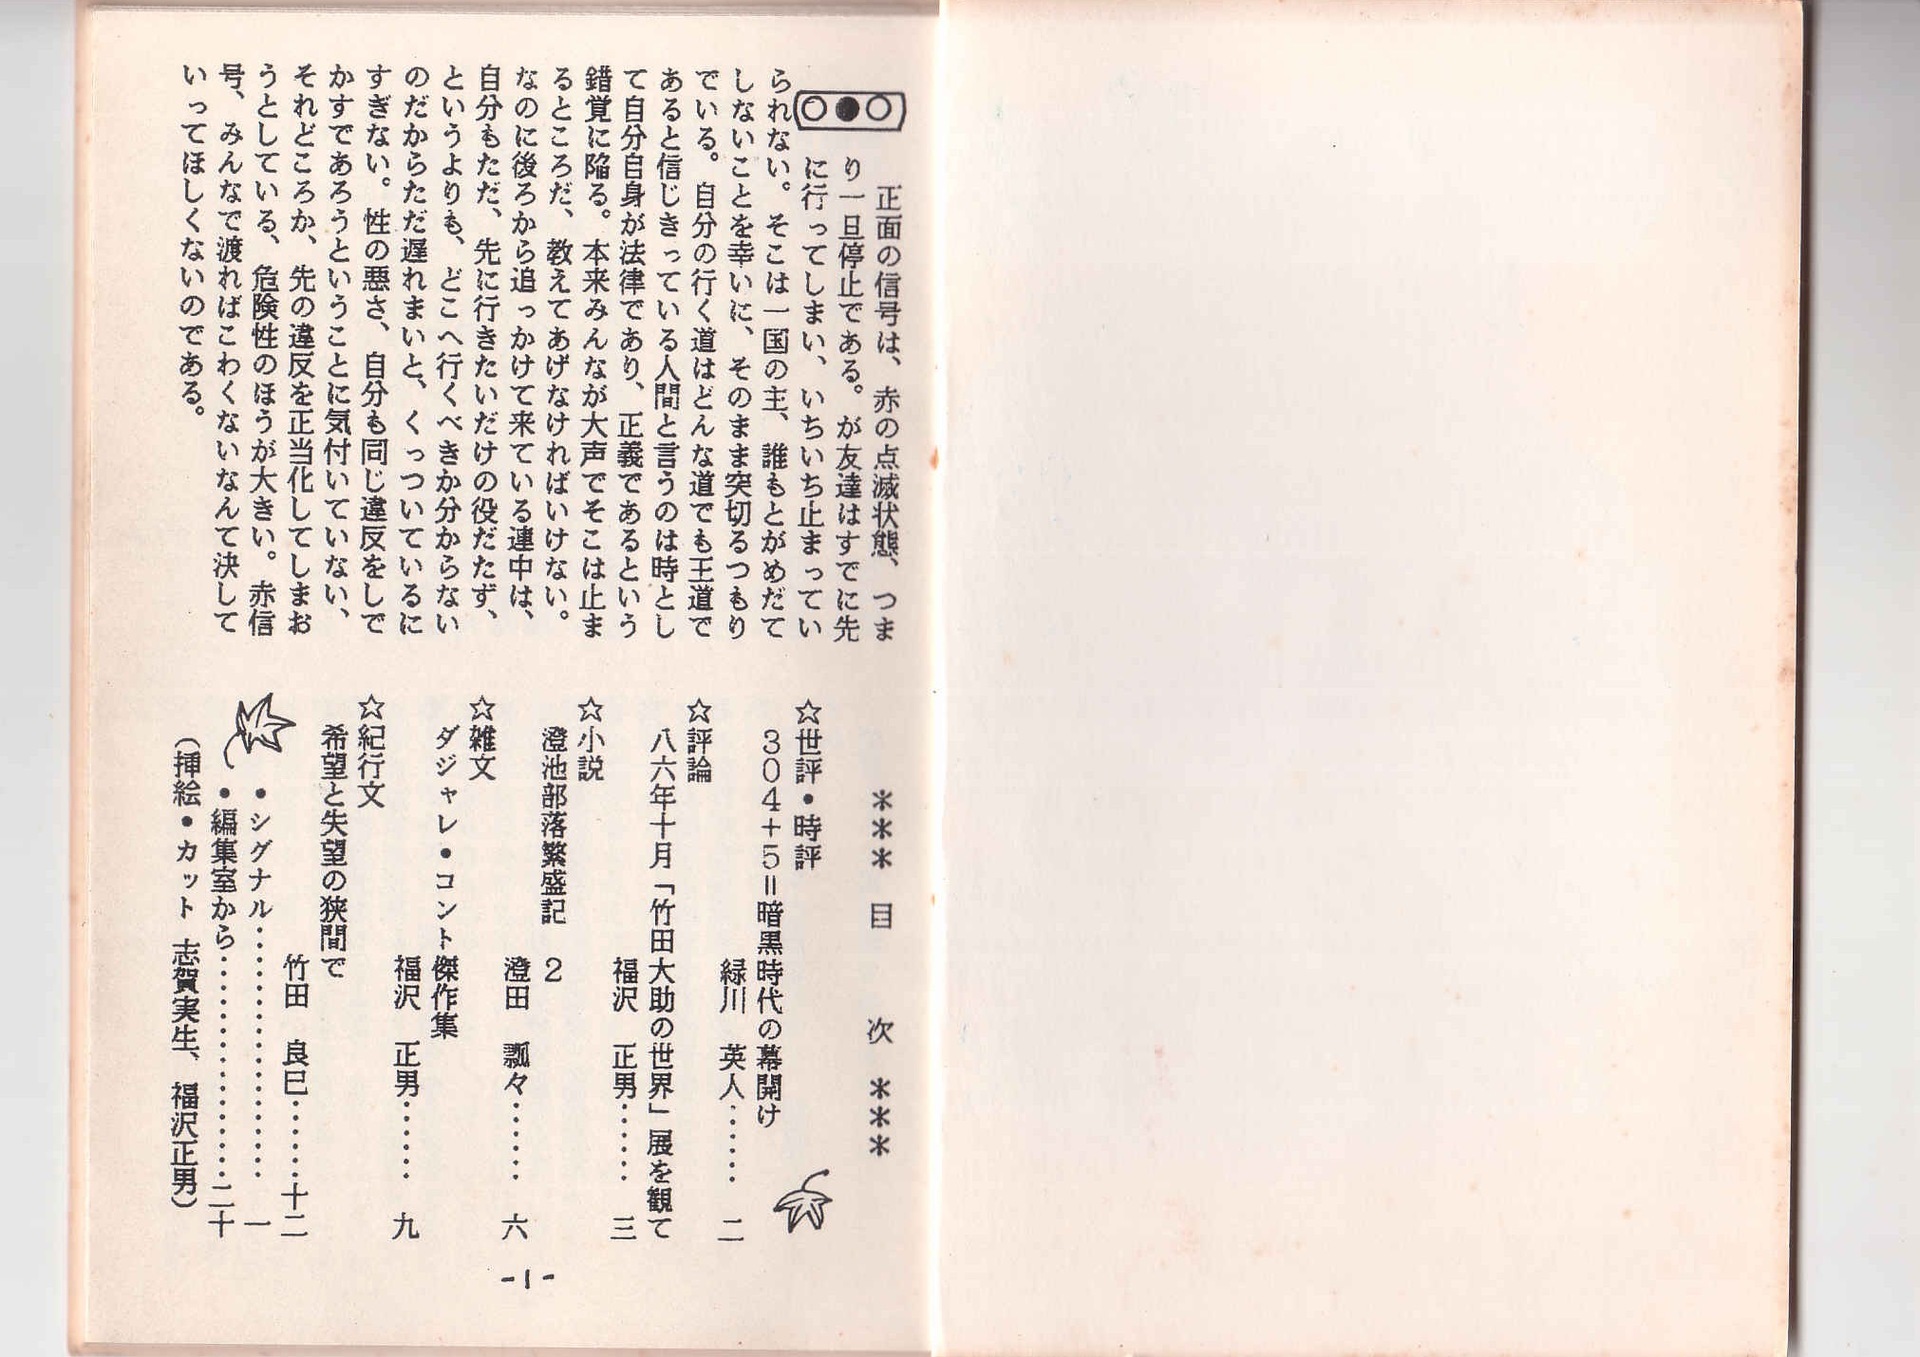 正面の信号は、赤の点滅状態、つま
り一旦停止である。が友達はすでに先
に行ってしまい、いちいち止まってい
られない。そこは一国の主、誰もとがめだて
しないことを幸いに、そのまま突切るつもり
でいる。自分の行く道はどんな道でも王道で
あると信じきっている人間と言うのは時とし
て自分自身が法律であり、正義であるという
錯覚に陥る。本来みんなが大声でそこは止ま
るところだ、教えてあげなければいけない。
なのに後ろから追っかけて来ている連中は、
自分もただ、先に行きたいだけの役だたず、
というよりも、どこへ行くべきか分からない
のだからただ遅れまいと、くっついているに
すぎない。性の悪さ、自分も同じ違反をしで
かすであろうということに気付いていない、
それどころか、先の違反を正当化してしまお
うとしている、危険性のほうが大きい。赤信
号、みんなで渡ればこわくないなんて決して
いってほしくないのである。
＊＊＊　目　　次　＊＊＊
☆世評・時評
３０４＋５＝暗黒時代の幕開け
緑川　英人……　二
☆評論
八六年十月「竹田大助の世界」展を観て
福沢　正男……　三
☆小説
澄池部落繁盛記　２
澄田　瓢々……　六
☆雑文
ダジャレ・コント傑作集
福沢　正男……　九
☆紀行文
希望と失望の狭間で
竹田　良巳……十二
・シグナル………………　一
・編集室から………………二十
（挿絵・カット　志賀実生、福沢正男）
-1-